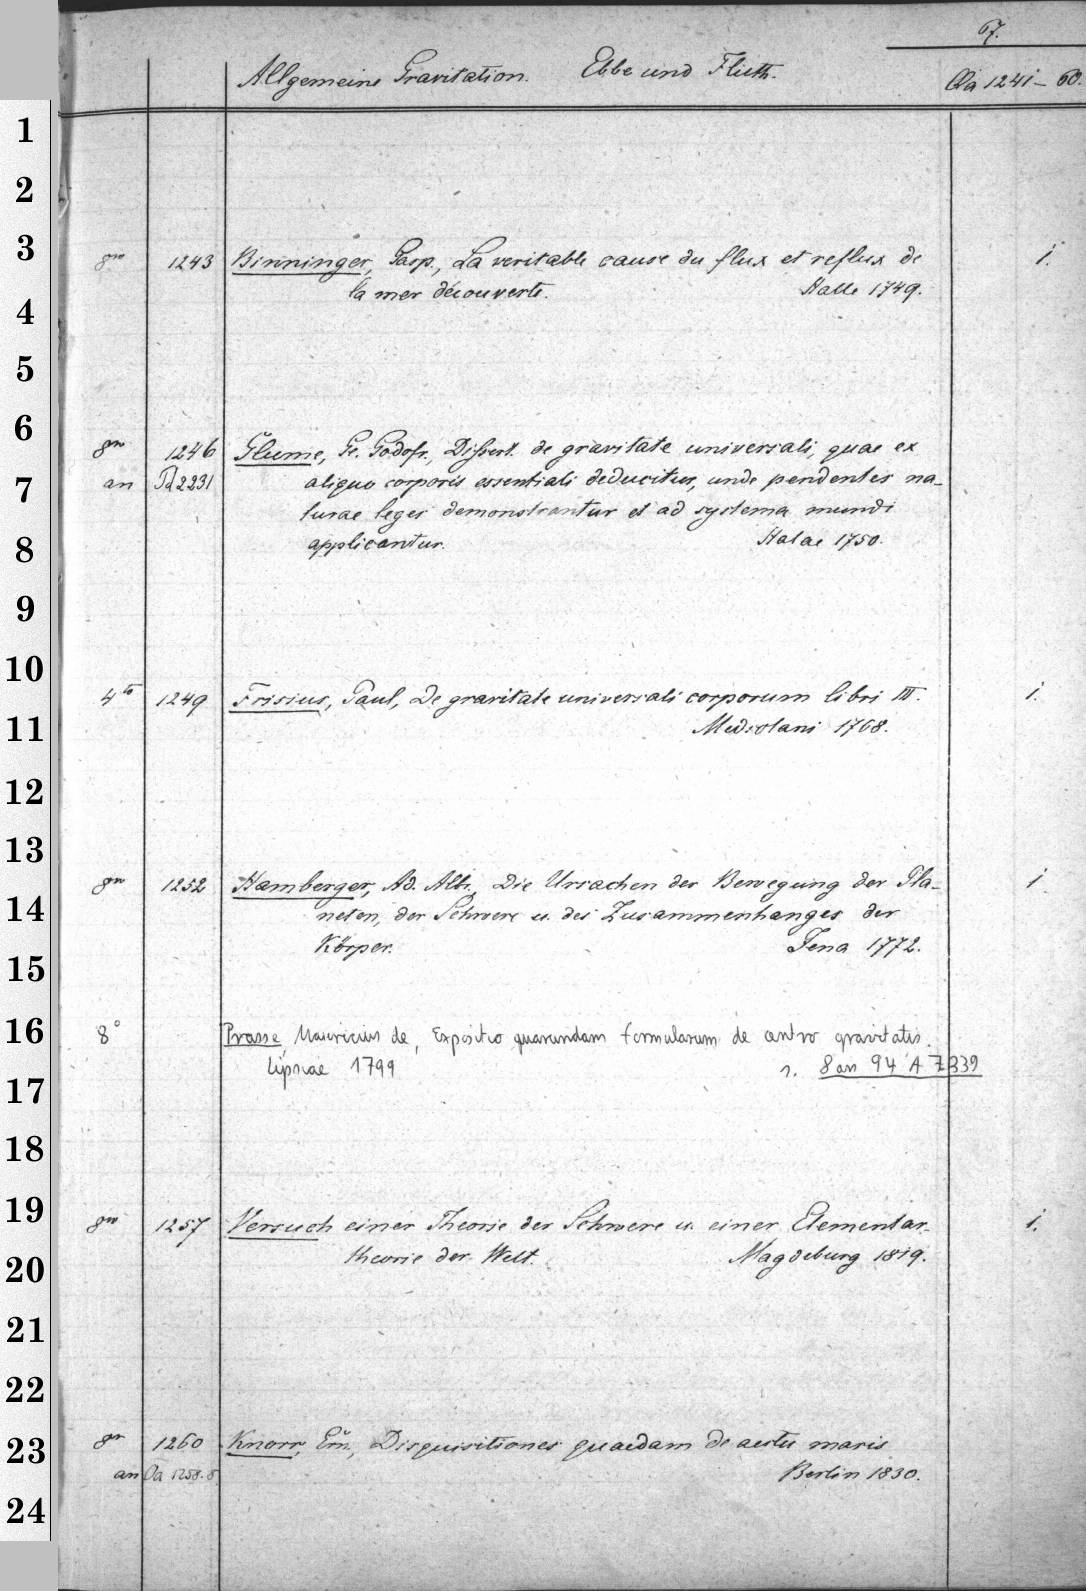 67.
Allgemeine Gravitation. Ebbe und Fluth. Oa 1241–60.
1
2
3
8vo 1243 Binninger, Gasp., La veritable cause du flux et reflux de 1.
la mer découverte. Halle 1749.
4
5
6
8vo 1246 Glume, Ge. Godofr., Dissert. de gravitate universali, quae ex
7
an Pd 2231 aliquo corporis essentiali deducitur, unde pendentes na-
turae leges demonstrantur et ad systema mundi
8
applicantur. Halae 1750.
9
10
4to 1249 Frisius, Paul, De gravitate universali corporum libri III. 1.
11
Mediolani 1768.
12
13
8vo 1252 Hamberger, Ad. Albr., Die Ursachen der Bewegung der Pla- 1
14
neten, der Schwere u. des Zusammenhanges der
Körper. Jena 1772.
15
16
8° Prasse Mauricius de, Expositio quarundam formularum de centro gravitatis.
Lipsiae 1799 s. 8 an 94 A 7339
17
18
19
8vo 1257 Versuch einer Theorie der Schwere u. einer Elementar- 1.
20
theorie der Welt. Magdeburg 1819.
21
22
23
8vo 1260 Knorr, Ern., Disquisitiones quaedam de aestu maris
an Oa 1258.8 Berlin 1830.
24